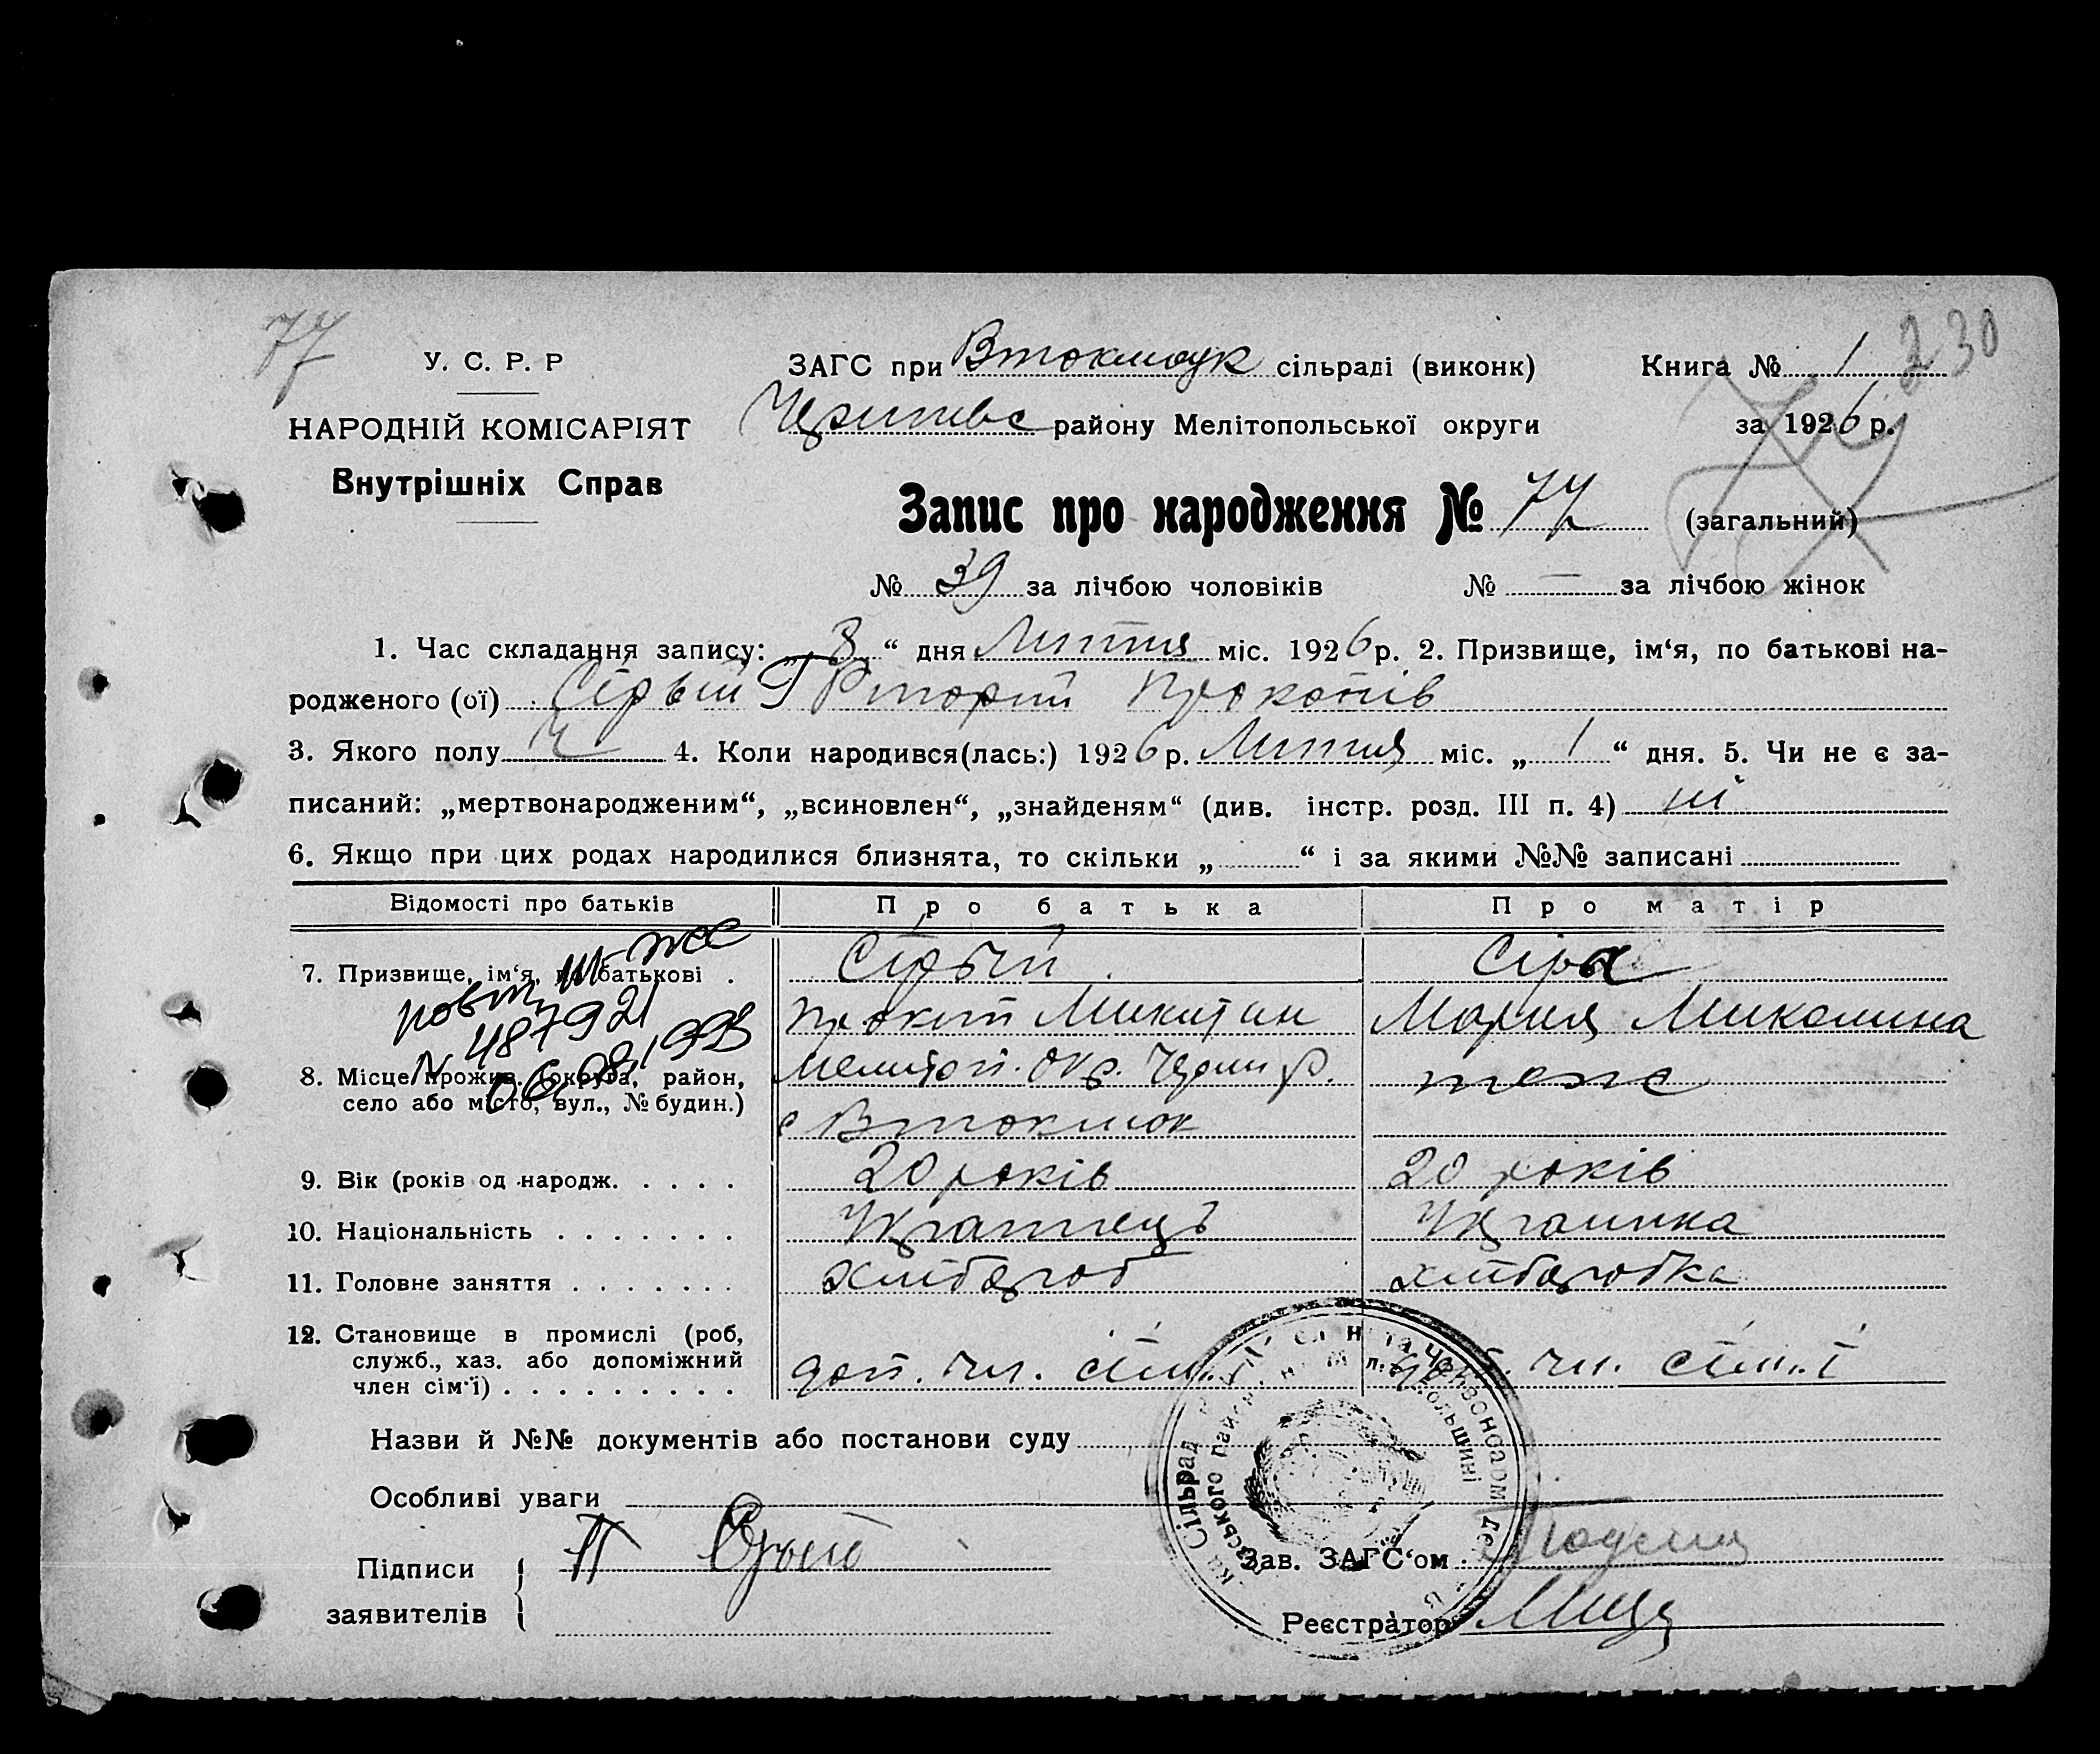 77
230
У. С. Р. Р
ЗАГС при Втокмаук сільраді (виконк)
Книга № 1
НАРОДНІЙ КОМІСАРІЯТ
району Мелітопольської округи
за 1926 р.
Внутрішніх Справ
Запис про народження № 77 (загальний)
№ 39 за лічбою чоловіків № — за лічбою жінок
1. Час складання запису: „ 8 “ дня Липтня міс. 1926 р. 2. Призвище, ім‘я, по батькові на-
родженого (ої) Сірый Прокопів
3. Якого полу Ч 4. Коли народився(лась:) 1926 р. Липтня міс. „ 1 “ дня. 5. Чи не є за-
писаний: „мертвонародженим“, „всиновлен“, „знайденям“ (див. інстр. розд. III п. 4) ні
6. Якщо при цих родах народилися близнята, то скільки „ “ і за якими №№ записані
Відомості про батьків Про батька Про матір
7. Призвище, ім‘я, по батькові . Сірый Сіра
Прокіп Микитин Мария Миколина
повт. III-ЖС
N 487921
06.08.1993
8. Місце прожив. (округа, район, Мелитоп. окр. Черниг р. тоже
село або місто, вул., № будин.)
с Втокмок
9. Вік (років од народж. . . . . 20 років 20 років
10. Національність . . . . . . . Украінець Украинка
11. Головне заняття . . . . . . . хлібороб хліборобка
12. Становище в промислі (роб,
служб., хаз. або допоміжний
член сім‘ї) . . . . . . . . . . доп. чл. сім. доп. чл. сім.ї
Назви й №№ документів або постанови суду
Особливі уваги
Підписи
заявителів
П Сірый
Зав. ЗАГС‘ом
Реєстратор